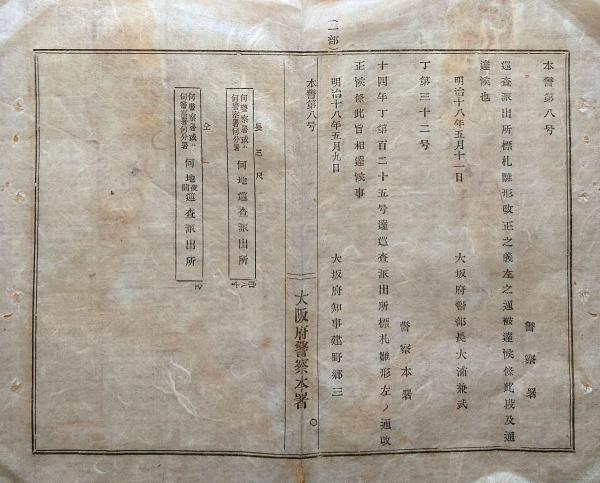 (一部)
本警第八号
警察署
巡査派出所標札雛形改正之義左之通被達候条此段及通
達候也
明治十八年五月十一日
大坂府警部長大浦兼武
丁第三十二号
警察本署
十四年丁第百二十五号達巡査派出所標札雛形左ノ通改
正候条此旨相達候事
明治十八年五月九日
大坂府知事建野郷三
本警第八号
大阪府警察本署
長三尺
何警察署或ハ何警察署何分署
何地巡査派出所
巾八寸
仝
何警察署或ハ何警察署何分署
何地夜間巡査派出所
仝